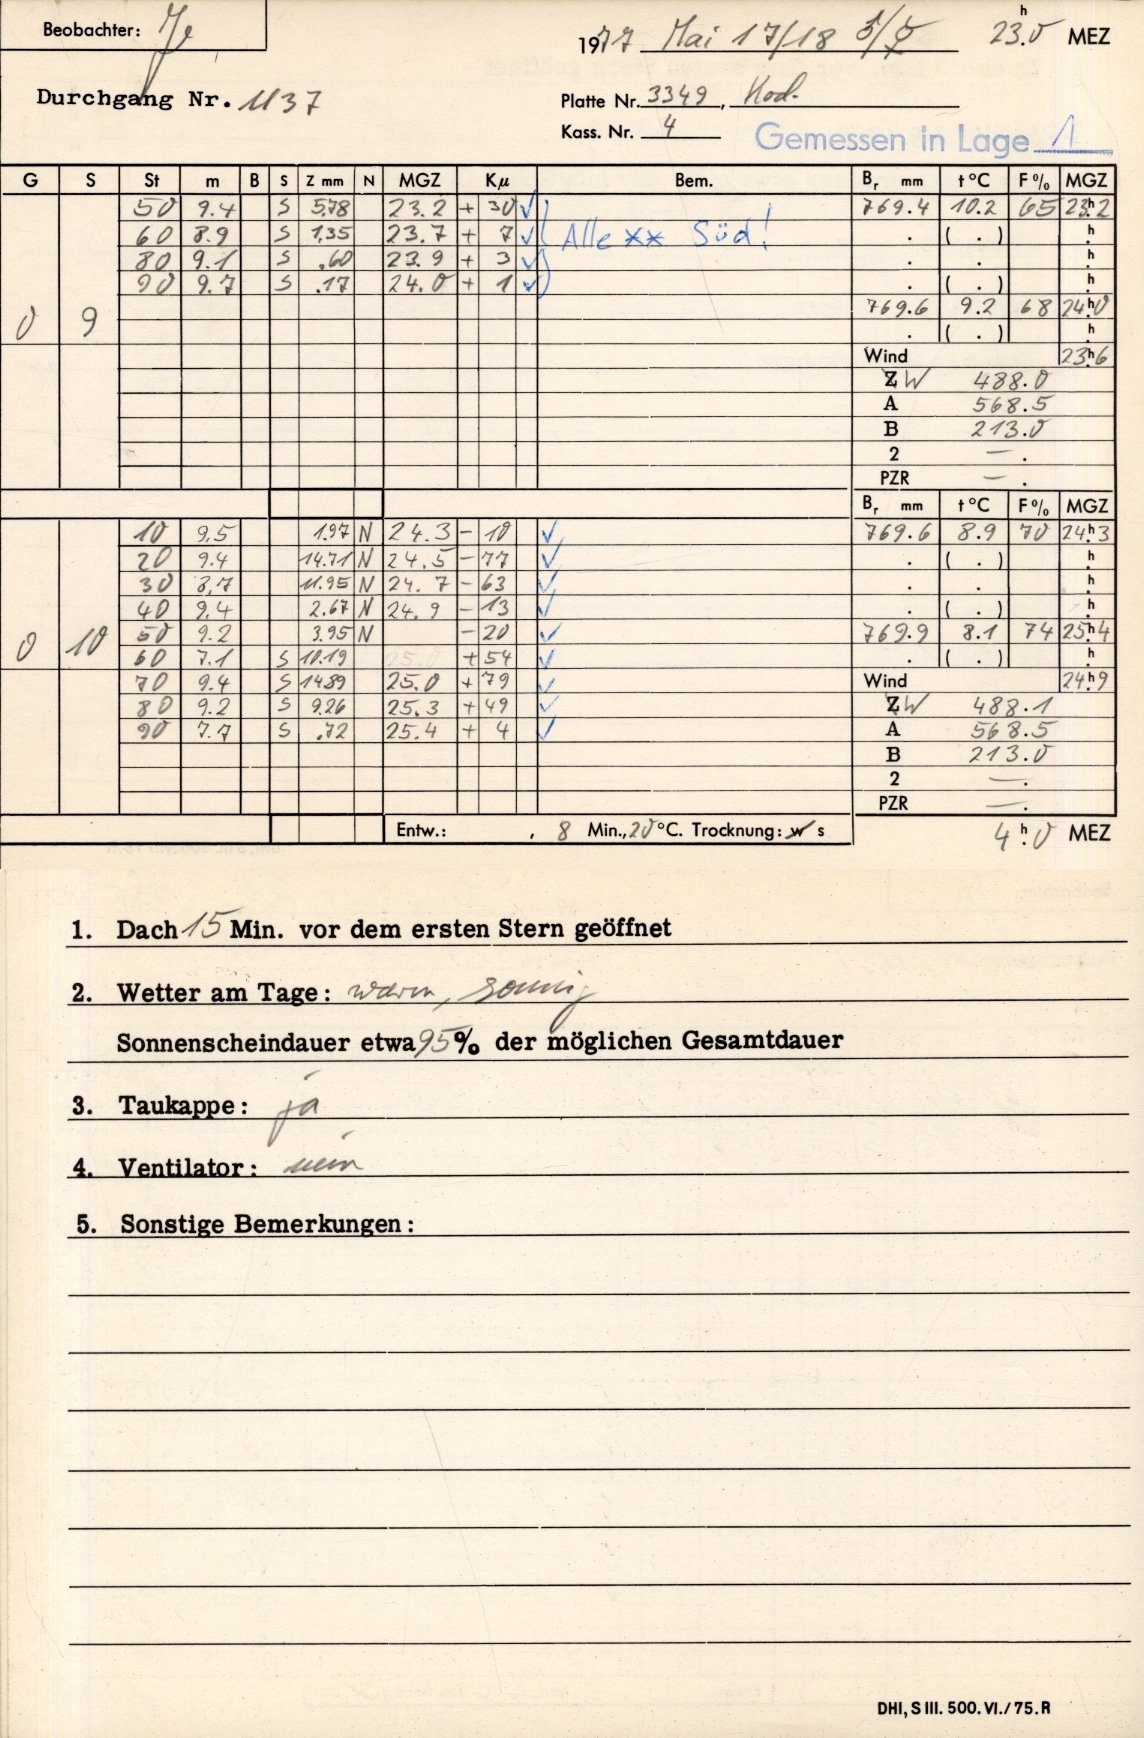 Beobachter: Je
1977 Mai 17/18 23.0 h MEZ
Durchgang Nr. 1137
Platte Nr. 3349, Kod.
Kass. Nr. 4 Gemessen in Lage 1
G S St m B S Z mm N MGZ Kμ Bem. Br mm t°C F% MGZ
50 9.4 S 5.78 23.2 + 30 ✓ 769.4 10.2 65 23h.2
60 8.9 S 1.35 23.7 + 7 ✓ Alle ** Süd! . ( . ) h.
80 9.1 S .60 23.9 + 3 ✓ . . h.
90 9.7 S .17 24.0 + 1 ✓ . ( . ) h.
0 9 769.6 9.2 68 24h.0
. ( . ) h.
Wind 23h.6
Z W 488.0
A 568.5
B 213.0
2 — .
PZR — .
Br mm t°C F% MGZ
10 9.5 1.97 N 24.3 - 10 ✓ 769.6 8.9 70 24h.3
20 9.4 14.71 N 24.5 - 77 ✓ . ( . ) h.
30 8.7 11.95 N 24.7 - 63 ✓ . . h.
40 9.4 2.67 N 24.9 - 13 ✓ . ( . ) h.
0 10 50 9.2 3.95 N - 20 ✓ 769.9 8.1 74 25h.4
60 7.1 S 10.19 + 54 ✓ . ( . ) h.
70 9.4 S 14.89 25.0 + 79 ✓ Wind 24h.9
80 9.2 S 9.26 25.3 + 49 ✓ Z W 488.1
90 7.7 S .72 25.4 + 4 ✓ A 568.5
B 213.0
2 — .
PZR — .
Entw.: , 8 Min., 20 °C. Trocknung: w s 4 h. 0 MEZ
1. Dach 15 Min. vor dem ersten Stern geöffnet
2. Wetter am Tage: warm, sonnig
Sonnenscheindauer etwa 95% der möglichen Gesamtdauer
3. Taukappe: ja
4. Ventilator: nein
5. Sonstige Bemerkungen:
DHI, S III. 500. VI./75. R